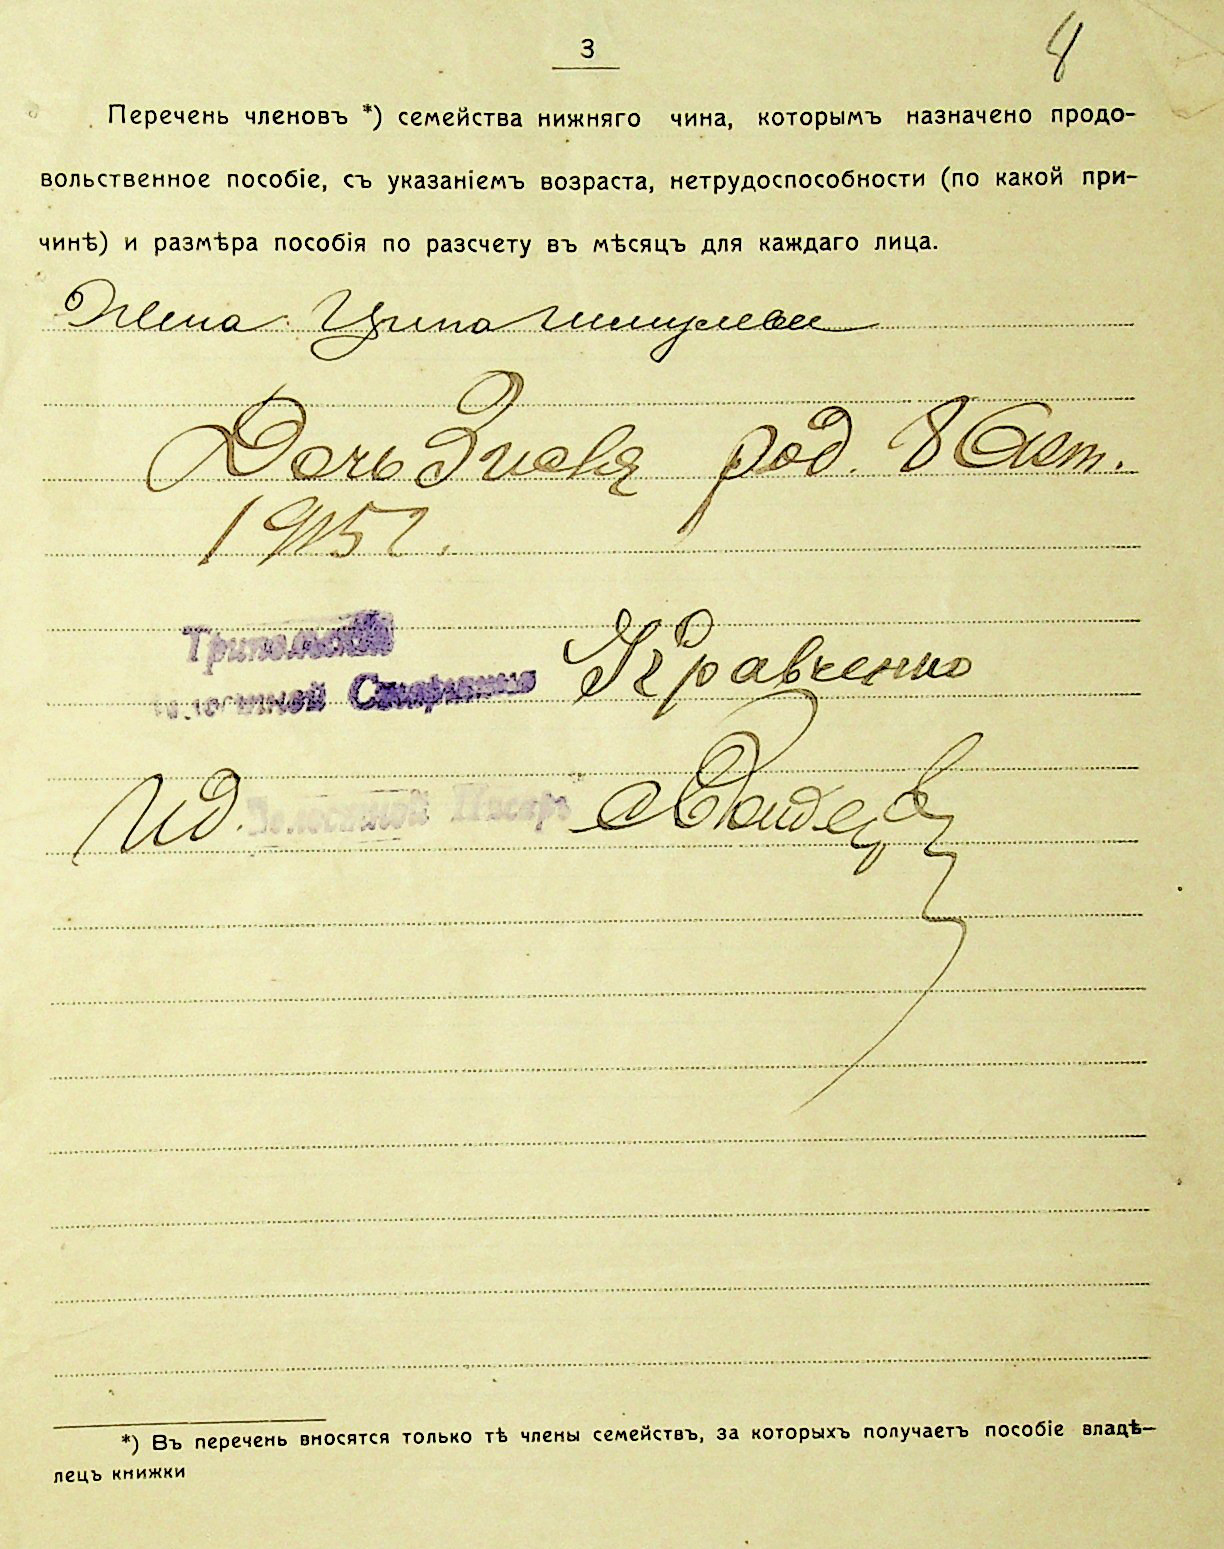 3
8
Перечень членовъ *) семейства нижняго чина, которымъ назначено продо-
вольственное пособіе, съ указаніемъ возраста, нетрудоспособности (по какой при-
чинѣ) и размѣра пособія по разсчету въ мѣсяцъ для каждаго лица.
Жена Ципа
Дочь род. 8 Окт.
1915 г.
Трипольскій
Волостной Старшина Кравченко
И д. Волостной Писарь
*) Въ перечень вносятся только тѣ члены семействъ, за которыхъ получаетъ пособіе владѣ-
лецъ книжки